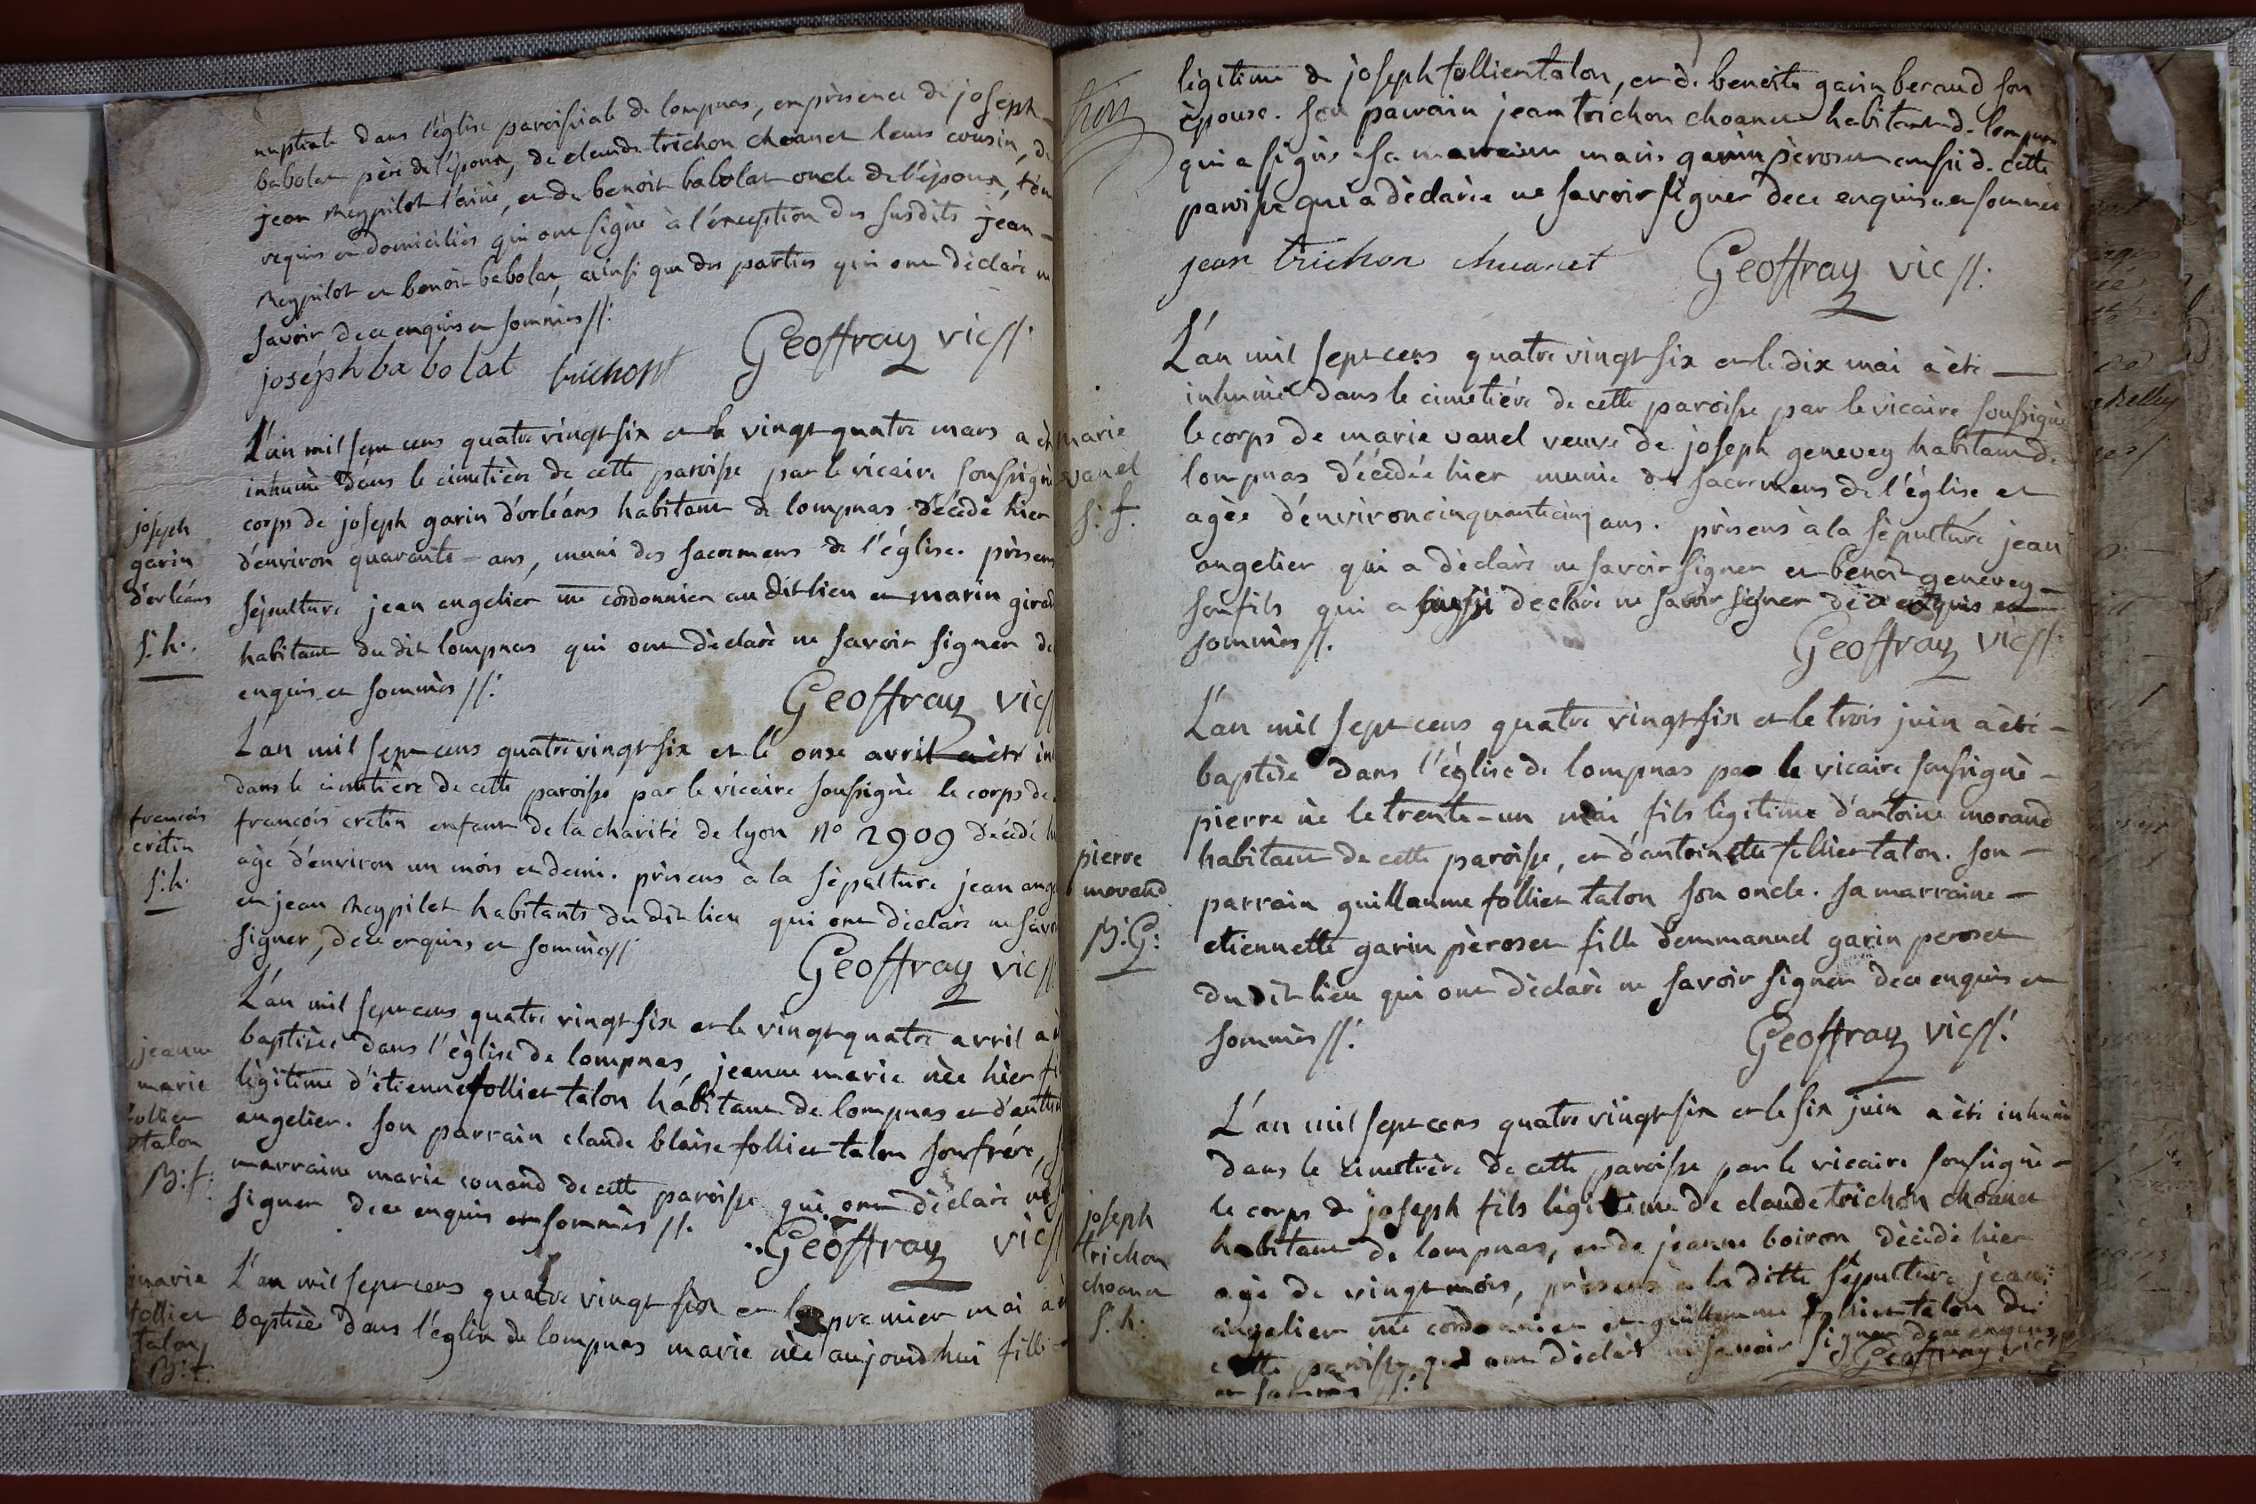 nuptiale dans l'église paroissiale de lompnas, en présence de joseph
babolat père de l'époux, de claude trichon choanet leurs cousin, de
jean Reypilot l'ainé, et de benoit babolat oncle de l'époux, tém
requis et domiciliés qui ont signé à l'exception des susdits jean
Reypilot et benoit babolat, ainsi que des parties qui ont déclaré ne
savoir de ce enquis et sommés //.
joseph babolat trichont Geoffray vic //.
L'an mil sept cens quatre vingt six et le vingt quatre mars a ét
inhumé dans le cimetière de cette paroisse par le vicaire soussigné
joseph
garin
d'orléans
s: h:
corps de joseph garin d'orléans habitant de lompnas décédé hier
d'environ quarante ans, muni des sacremens de l'église. présens
sépulture jean angelier me cordonnier au dit lieu et marin girod
habitant du dit lompnas qui ont déclaré ne savoir signer de
enquis et sommés //.
Geoffray vic //
L'an mil sept cens quatre vingt six et le onse avril a été in
dans le cimetière de cette paroisse par le vicaire soussigné le corps de
francois
cretin
s: h:
francois cretin enfant de la charité de lyon No 2909 décédé h
agé d'environ un mois et demi. présens à la sépulture jean ang
et jean Reypilet habitants du dit lieu qui ont déclaré ne savo
signer, de ce enquis et sommés //.
Geoffray vic //
L'an mil sept cens quatre vingt six et le vingt quatre avril a é
jeanne
marie
follier
talon
B: f:
baptisée dans l'église de lompnas, jeanne marie née hier fi
légitime d'étienne follier talon habitant de lompnas et d'anth
angelier. son parrain claude blaise follier talon son frère, s
marraine marie conand de cette paroisse qui ont déclaré ne s
signer de ce enquis et sommés //.
Geoffray vic //
marie
follier
talon
B: f:
L'an mil sept cens quatre vingt six et le premier mai a é
baptisée dans l'église de lompnas marie née aujourdhui fille
légitime de joseph follier talon, et de benoite garin beraud son
épouse. son parrain jean trichon choanet habitant de lompnas
qui a signé sa marraine marie garin péroset aussi de cette
paroisse qui a déclarée ne savoir signer de ce enquise et sommée
jean trichon chuanet Geoffray vic //.
L'an mil sept cens quatre vingt six et le dix mai a été
inhumé dans le cimetière de cette paroisse par le vicaire soussigné
marie
vanel
s: f.
le corps de marie vanel veuve de joseph genevey habitant de
lompnas décédée hier munie des sacremens de l'église et
agée d'environ cinquante cinq ans. présens à la sépulture jean
angelier qui a déclaré ne savoir signer et benoit genevey
son fils qui a aussi déclaré ne savoir signer de ce enquis et
sommés //.
Geoffray vic //.
L'an mil sept cens quatre vingt six et le trois juin a été
baptisé dans l'église de lompnas par le vicaire soussigné
pierre né le trente-un mai fils légitime d'antoine morand
pierre
morand
B: G:
habitant de cette paroisse, et d'antoinette follier talon. son
parrain guillaume follier talon son oncle. sa marraine
etiennette garin péroset fille d'emmanuel garin peroset
du dit lieu qui ont déclaré ne savoir signer de ce enquis et
sommés //.
Geoffray vic //.
L'an mil sept cens quatre vingt six et le six juin a été inhumé
dans le cimetière de cette paroisse par le vicaire soussigné
joseph
trichon
choanet
s: h:
le corps de joseph fils légitime de claude trichon choanet
habitant de lompnas, et de jeanne boiron décédé hier
agé de vingt mois, présens à la ditte sépulture jean
angelier me cordonnier et guillaume follier talon de
cette paroisse qui ont déclaré ne savoir signer de ce enquis
et sommés //.
Geoffray vic //